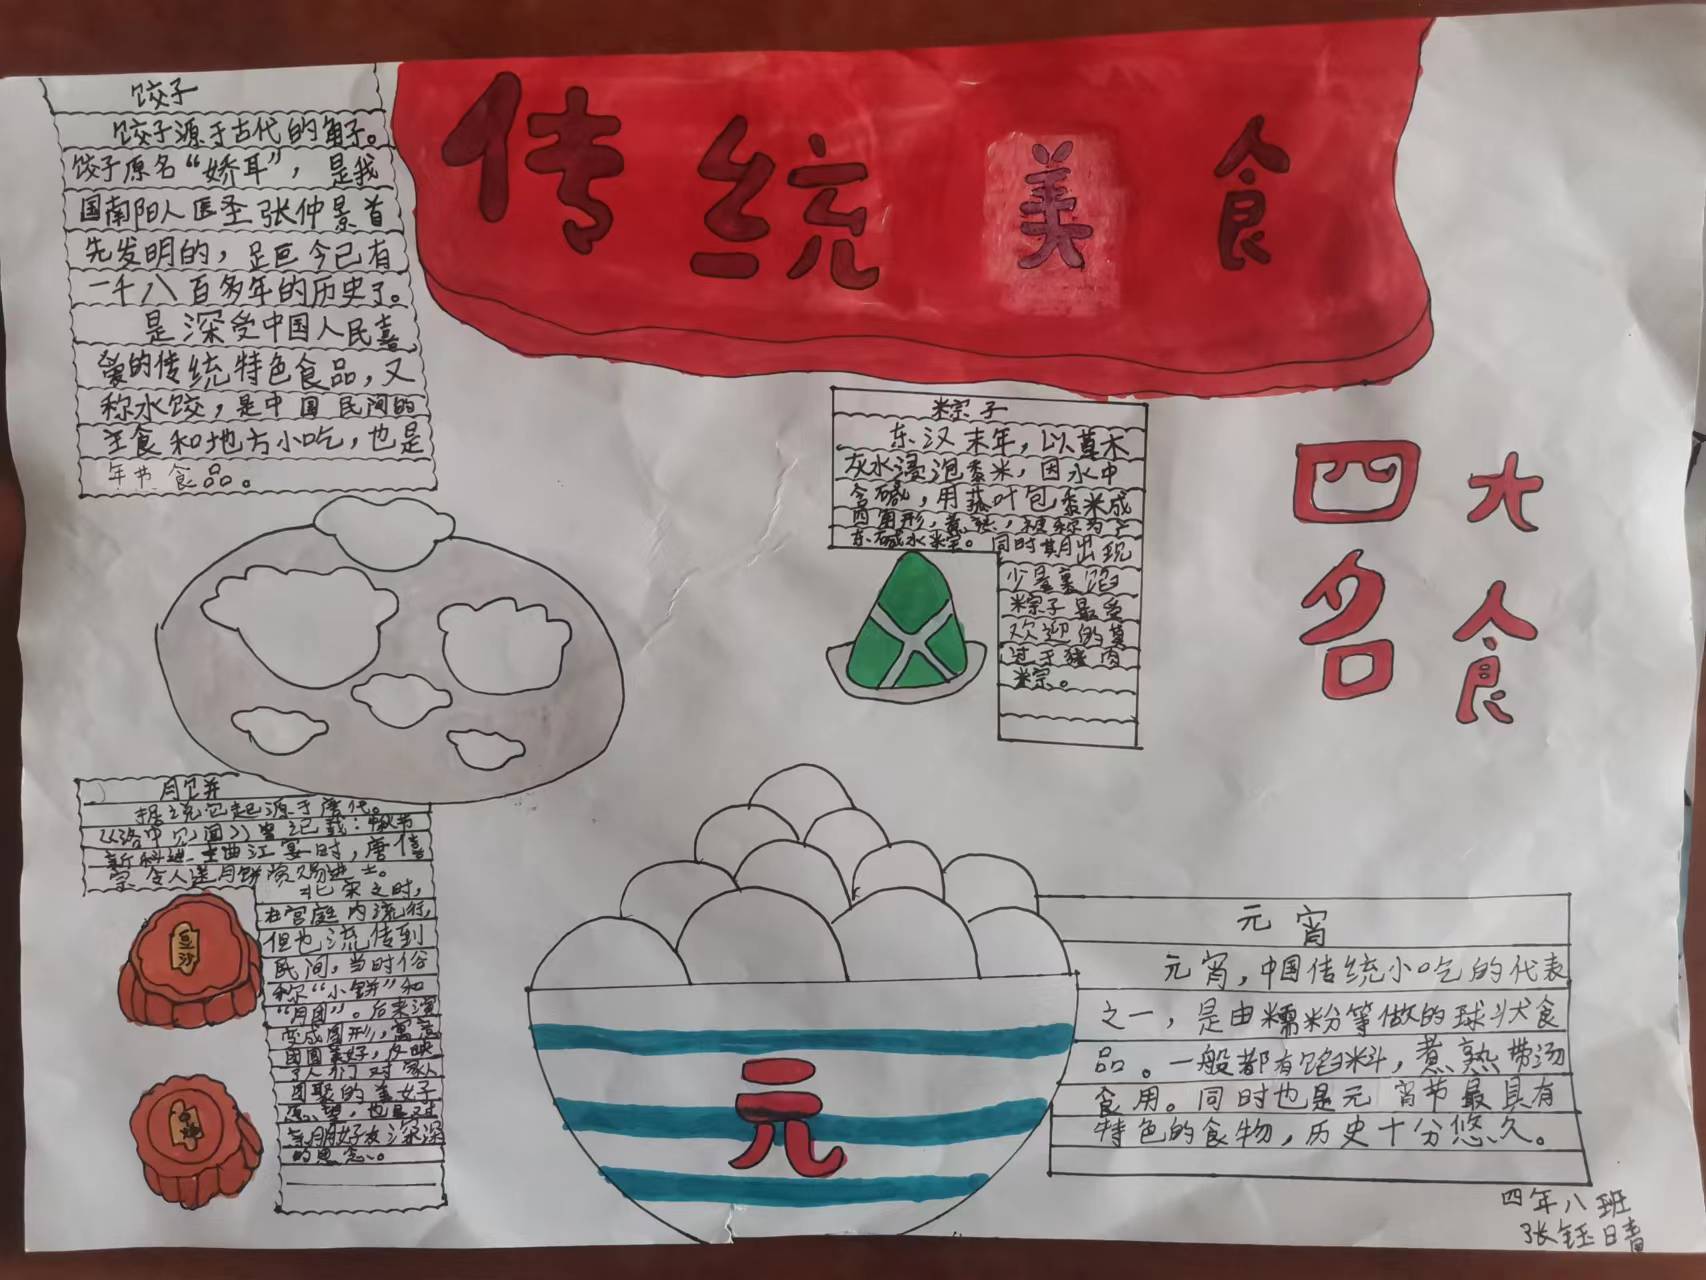 传统美食
四大
名食
饺子
饺子源于古代的角子。
饺子原名“娇耳”，是我
国南阳人医圣张仲景首
先发明的，距今已有
一千八百多年的历史了。
是深受中国人民喜
爱的传统特色食品，又
称水饺，是中国民间的
主食和地方小吃，也是
年节食品。
粽子
东汉末年，以草木
灰水浸泡黍米，因水中
含碱，用菰叶包黍米成
四角形，煮熟，
东碱水粽。同时期出现
少量裹馅
粽子最受
欢迎的莫
过于猪肉
粽。
月饼
据说它起源于唐代。
《洛中见闻》曾记载：中秋节
新科进士曲江宴时，唐僖
宗令人送月饼赏赐进士。
北宋之时，
在宫庭内流行，
但也流传到
民间，当时俗
称“小饼”和
“月团”。后来演
变成圆形，寓意
团圆美好，反映
了人们对家人
团聚的美好
愿望，也是对
亲朋好友深深
的思念。
豆沙
元
元宵
元宵，中国传统小吃的代表
之一，是由糯粉等做的球状食
品。一般都有馅料，煮熟带汤
食用。同时也是元宵节最具有
特色的食物，历史十分悠久。
四年八班
张钰晴